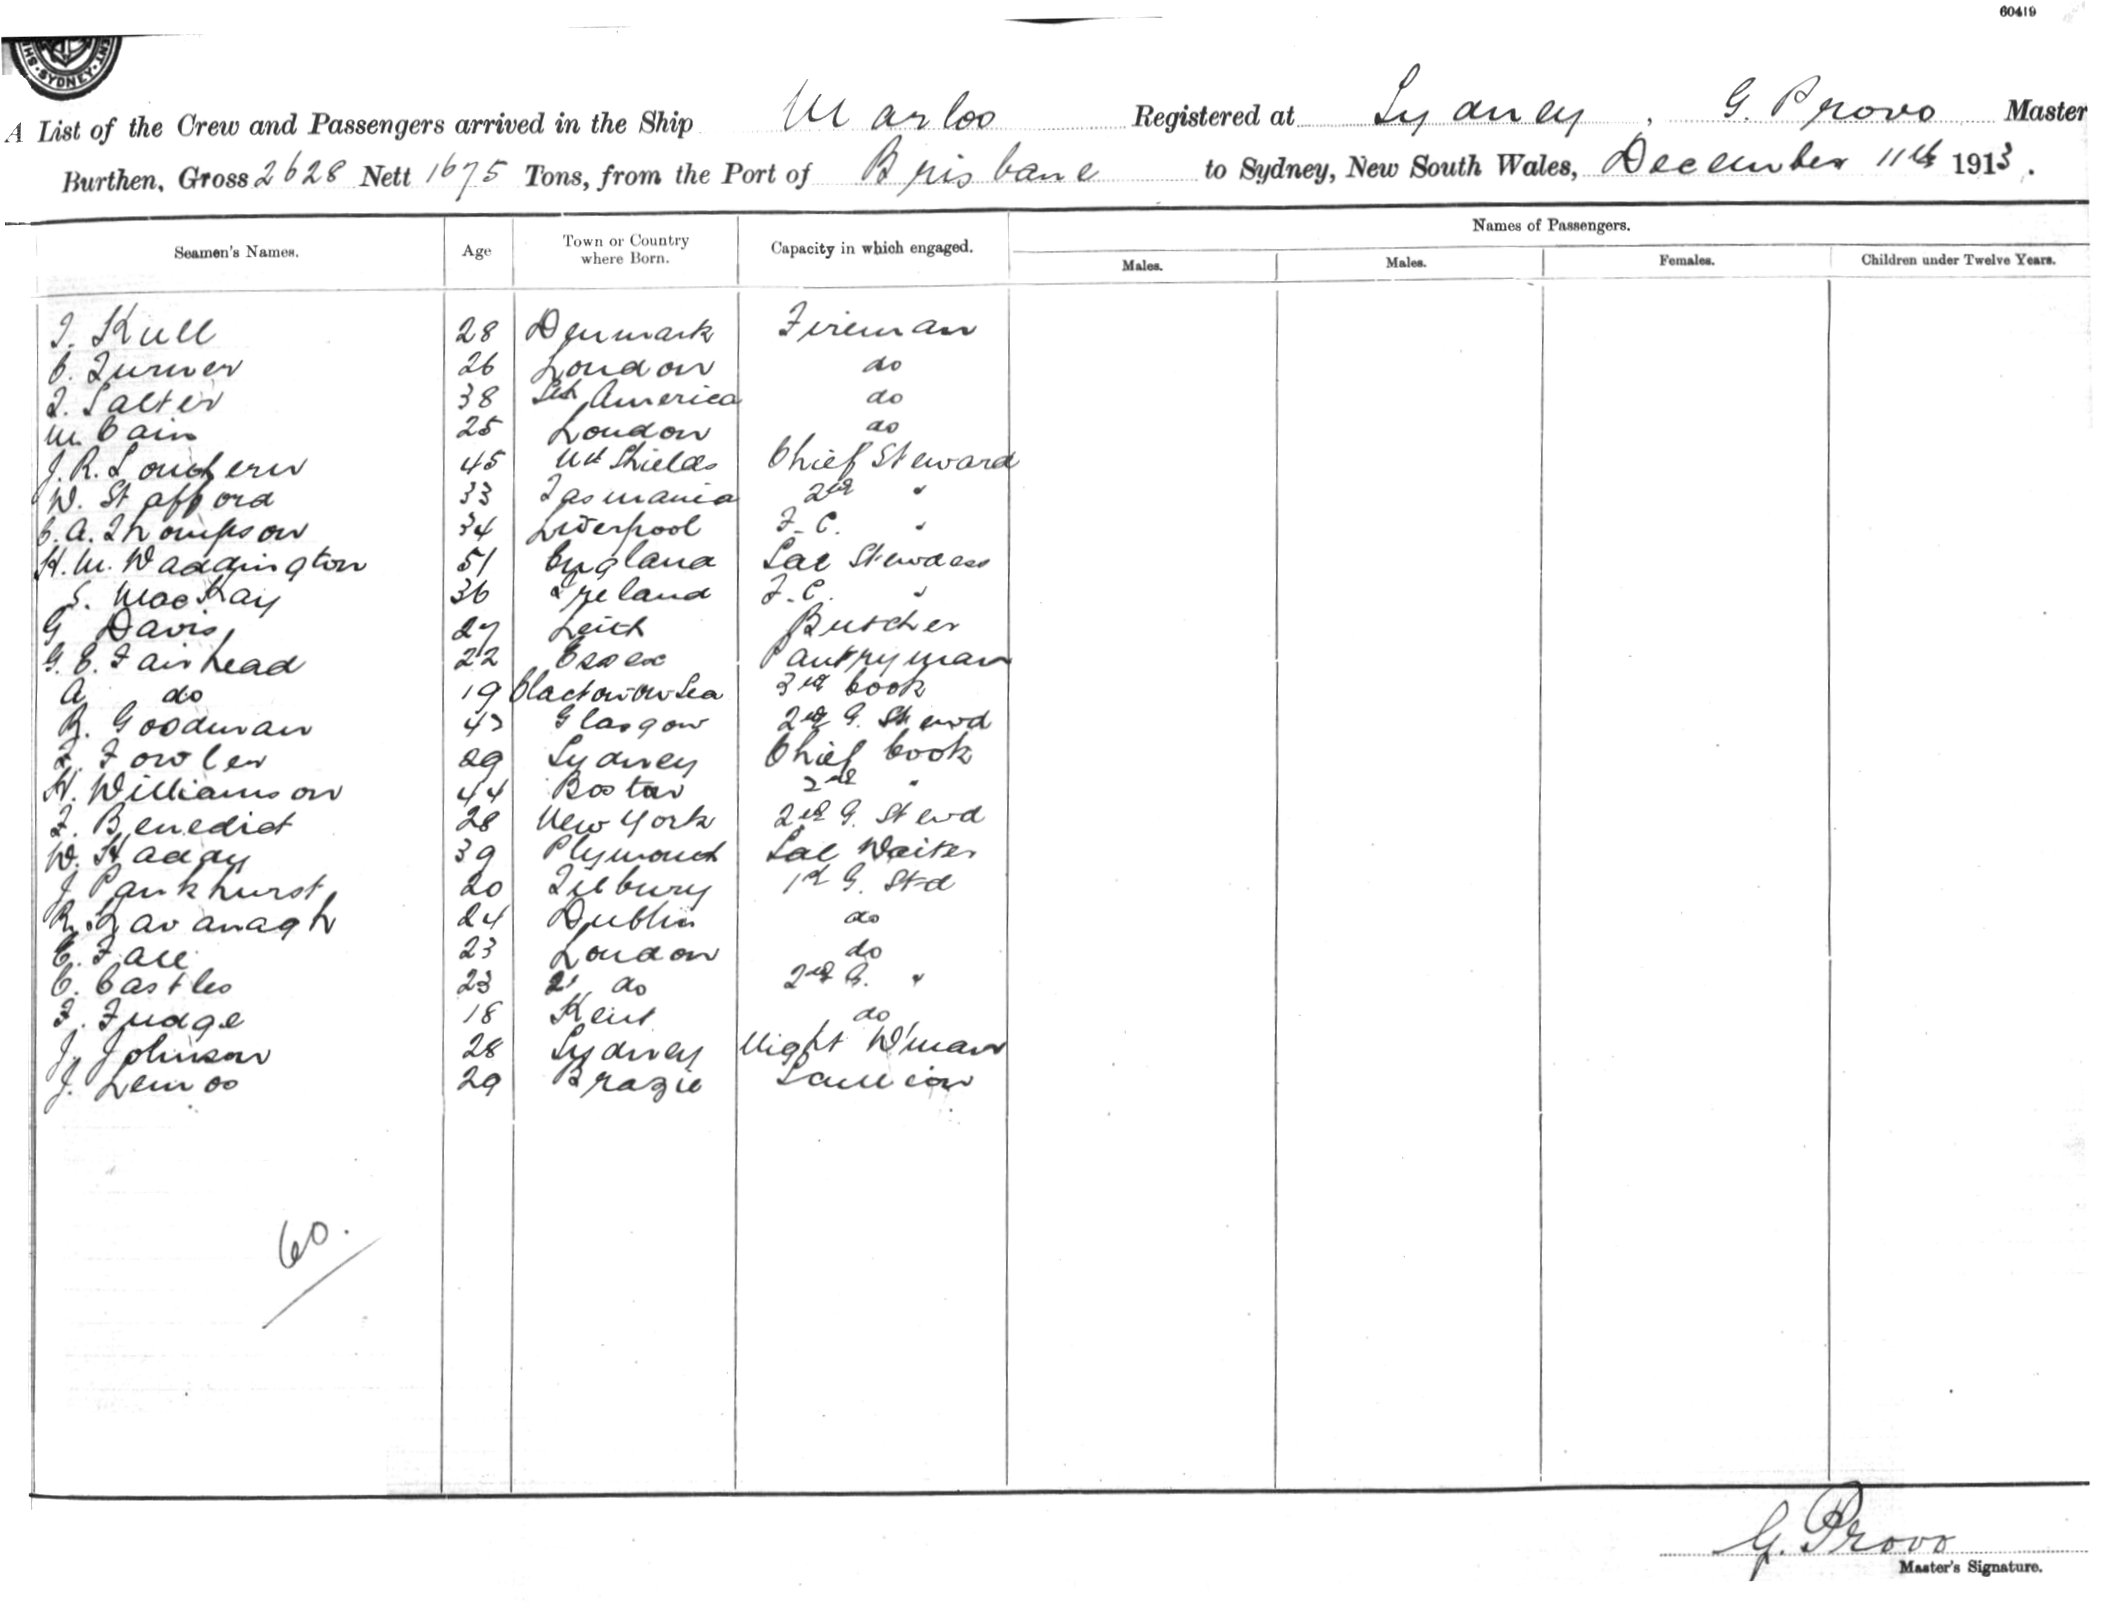 60419
SYDNEY
A List of the Crew and Passengers arrived in the Ship Marloo Registered at Sydney, G. Provo Master
Burthen, Gross 2628 Nett 1675 Tons, from the Port of Brisbane to Sydney, New South Wales, December 11th 1913.
Names of Passengers.
Seamen's Names. Age Town or Country where Born. Capacity in which engaged. Males. Males. Females. Children under Twelve Years.
28 Denmark Fireman
C. Turner 26 London do
Salter 38 Sth America do
M. Cain 25 London do
J. R. 45 Nth Shields Chief Steward
W. Stafford 33 Tasmania 2nd "
C. A. Thompson 34 Liverpool F. C. "
H. M. Waddington 51 England Sal Stewdess
S. MacKay 36 Ireland F. C. "
G Davis 27 Leith Butcher
G. E. Fairhead 22 Essex Pantryman
A do 19 Clacton on Sea 3rd Cook
R. Goodman 43 Glasgow 2nd G. Stewd
F. Fowler 29 Sydney Chief Cook
H. Williamson 44 Boston 2nd "
F. Benedict 28 New York 2nd G. Stewd
W. Haddy 39 Plymouth Sal Waiter
J. Pankhurst 20 Tilbury 1st G. Std
R. Kavanagh 24 Dublin do
C. 23 London do
C. Castles 23 do 2nd G. "
F. Fudge 18 Kent do
J. Johnson 28 Sydney Night W'man
J. Lemos 29 Brazil Scullion
60.
G. Provo
Master's Signature.